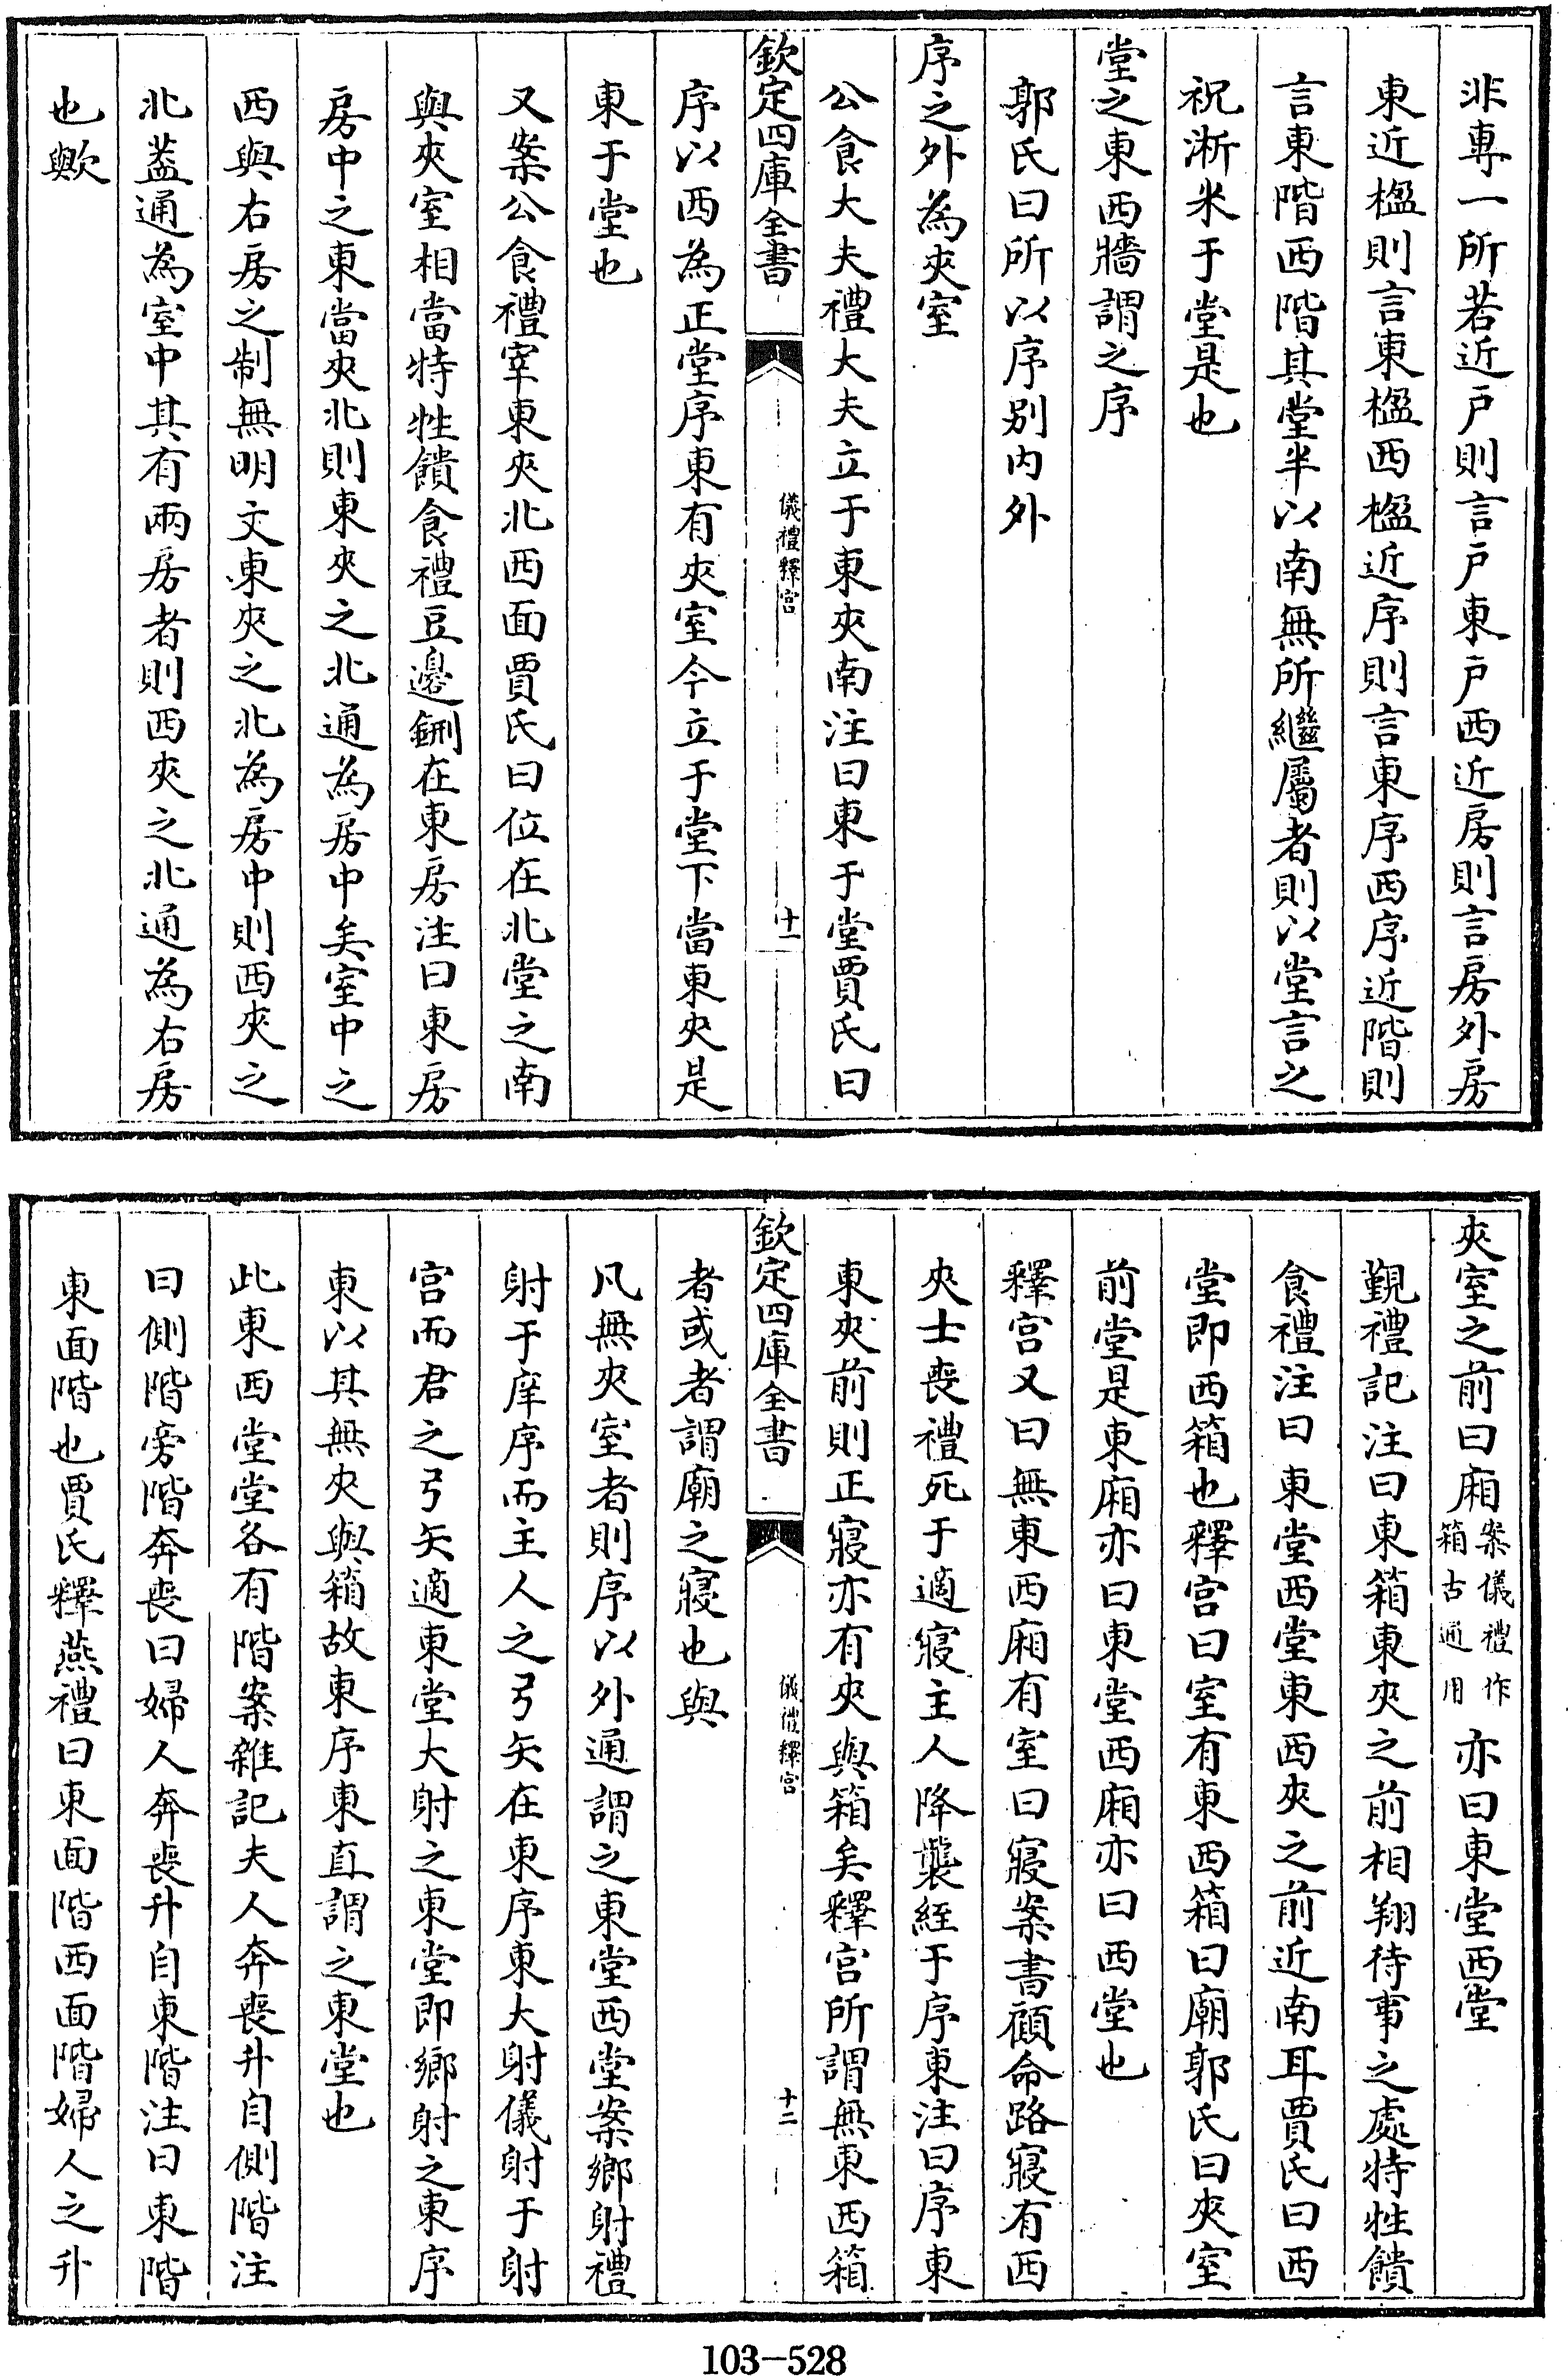 非專一所若近戸則言戸東戸西近房則言房外房
東近楹則言東楹西楹近序則言東序西序近階則
言東階西階其堂半以南無所繼屬者則以堂言之
祝淅米于堂是也
堂之東西牆謂之序
郭氏曰所以序别内外
序之外為夾室
公食大夫禮大夫立于東夾南注曰東于堂賈氏曰
欽定四庫全書
儀禮釋宫
十一
序以西為正堂序東有夾室今立于堂下當東夾是
東于堂也
又案公食禮宰東夾北西面賈氏曰位在北堂之南
與夾室相當特牲饋食禮豆籩鉶在東房注曰東房
房中之東當夾北則東夾之北通為房中矣室中之
西與右房之制無明文東夾之北為房中則西夾之
北蓋通為室中其有兩房者則西夾之北通為右房
也歟
夾室之前曰廂案儀禮作箱古通用亦曰東堂西堂
覲禮記注曰東箱東夾之前相翔待事之處特牲饋
食禮注曰東堂西堂東西夾之前近南耳賈氏曰西
堂即西箱也釋宫曰室有東西箱曰廟郭氏曰夾室
前堂是東廂亦曰東堂西廂亦曰西堂也
釋宫又曰無東西廂有室曰寢案書顧命路寢有西
夾士喪禮死于適寢主人降襲絰于序東注曰序東
東夾前則正寢亦有夾與箱矣釋宫所謂無東西箱
欽定四庫全書
儀禮釋宫
十二
者或者謂廟之寢也與
凡無夾室者則序以外通謂之東堂西堂案鄉射禮
射于庠序而主人之弓矢在東序東大射儀射于射
宫而君之弓矢適東堂大射之東堂即鄉射之東序
東以其無夾與箱故東序東直謂之東堂也
此東西堂堂各有階案雜記夫人奔喪升自側階注
曰側階旁階奔喪曰婦人奔喪升自東階注曰東階
東面階也賈氏釋燕禮曰東面階西面階婦人之升
103-528